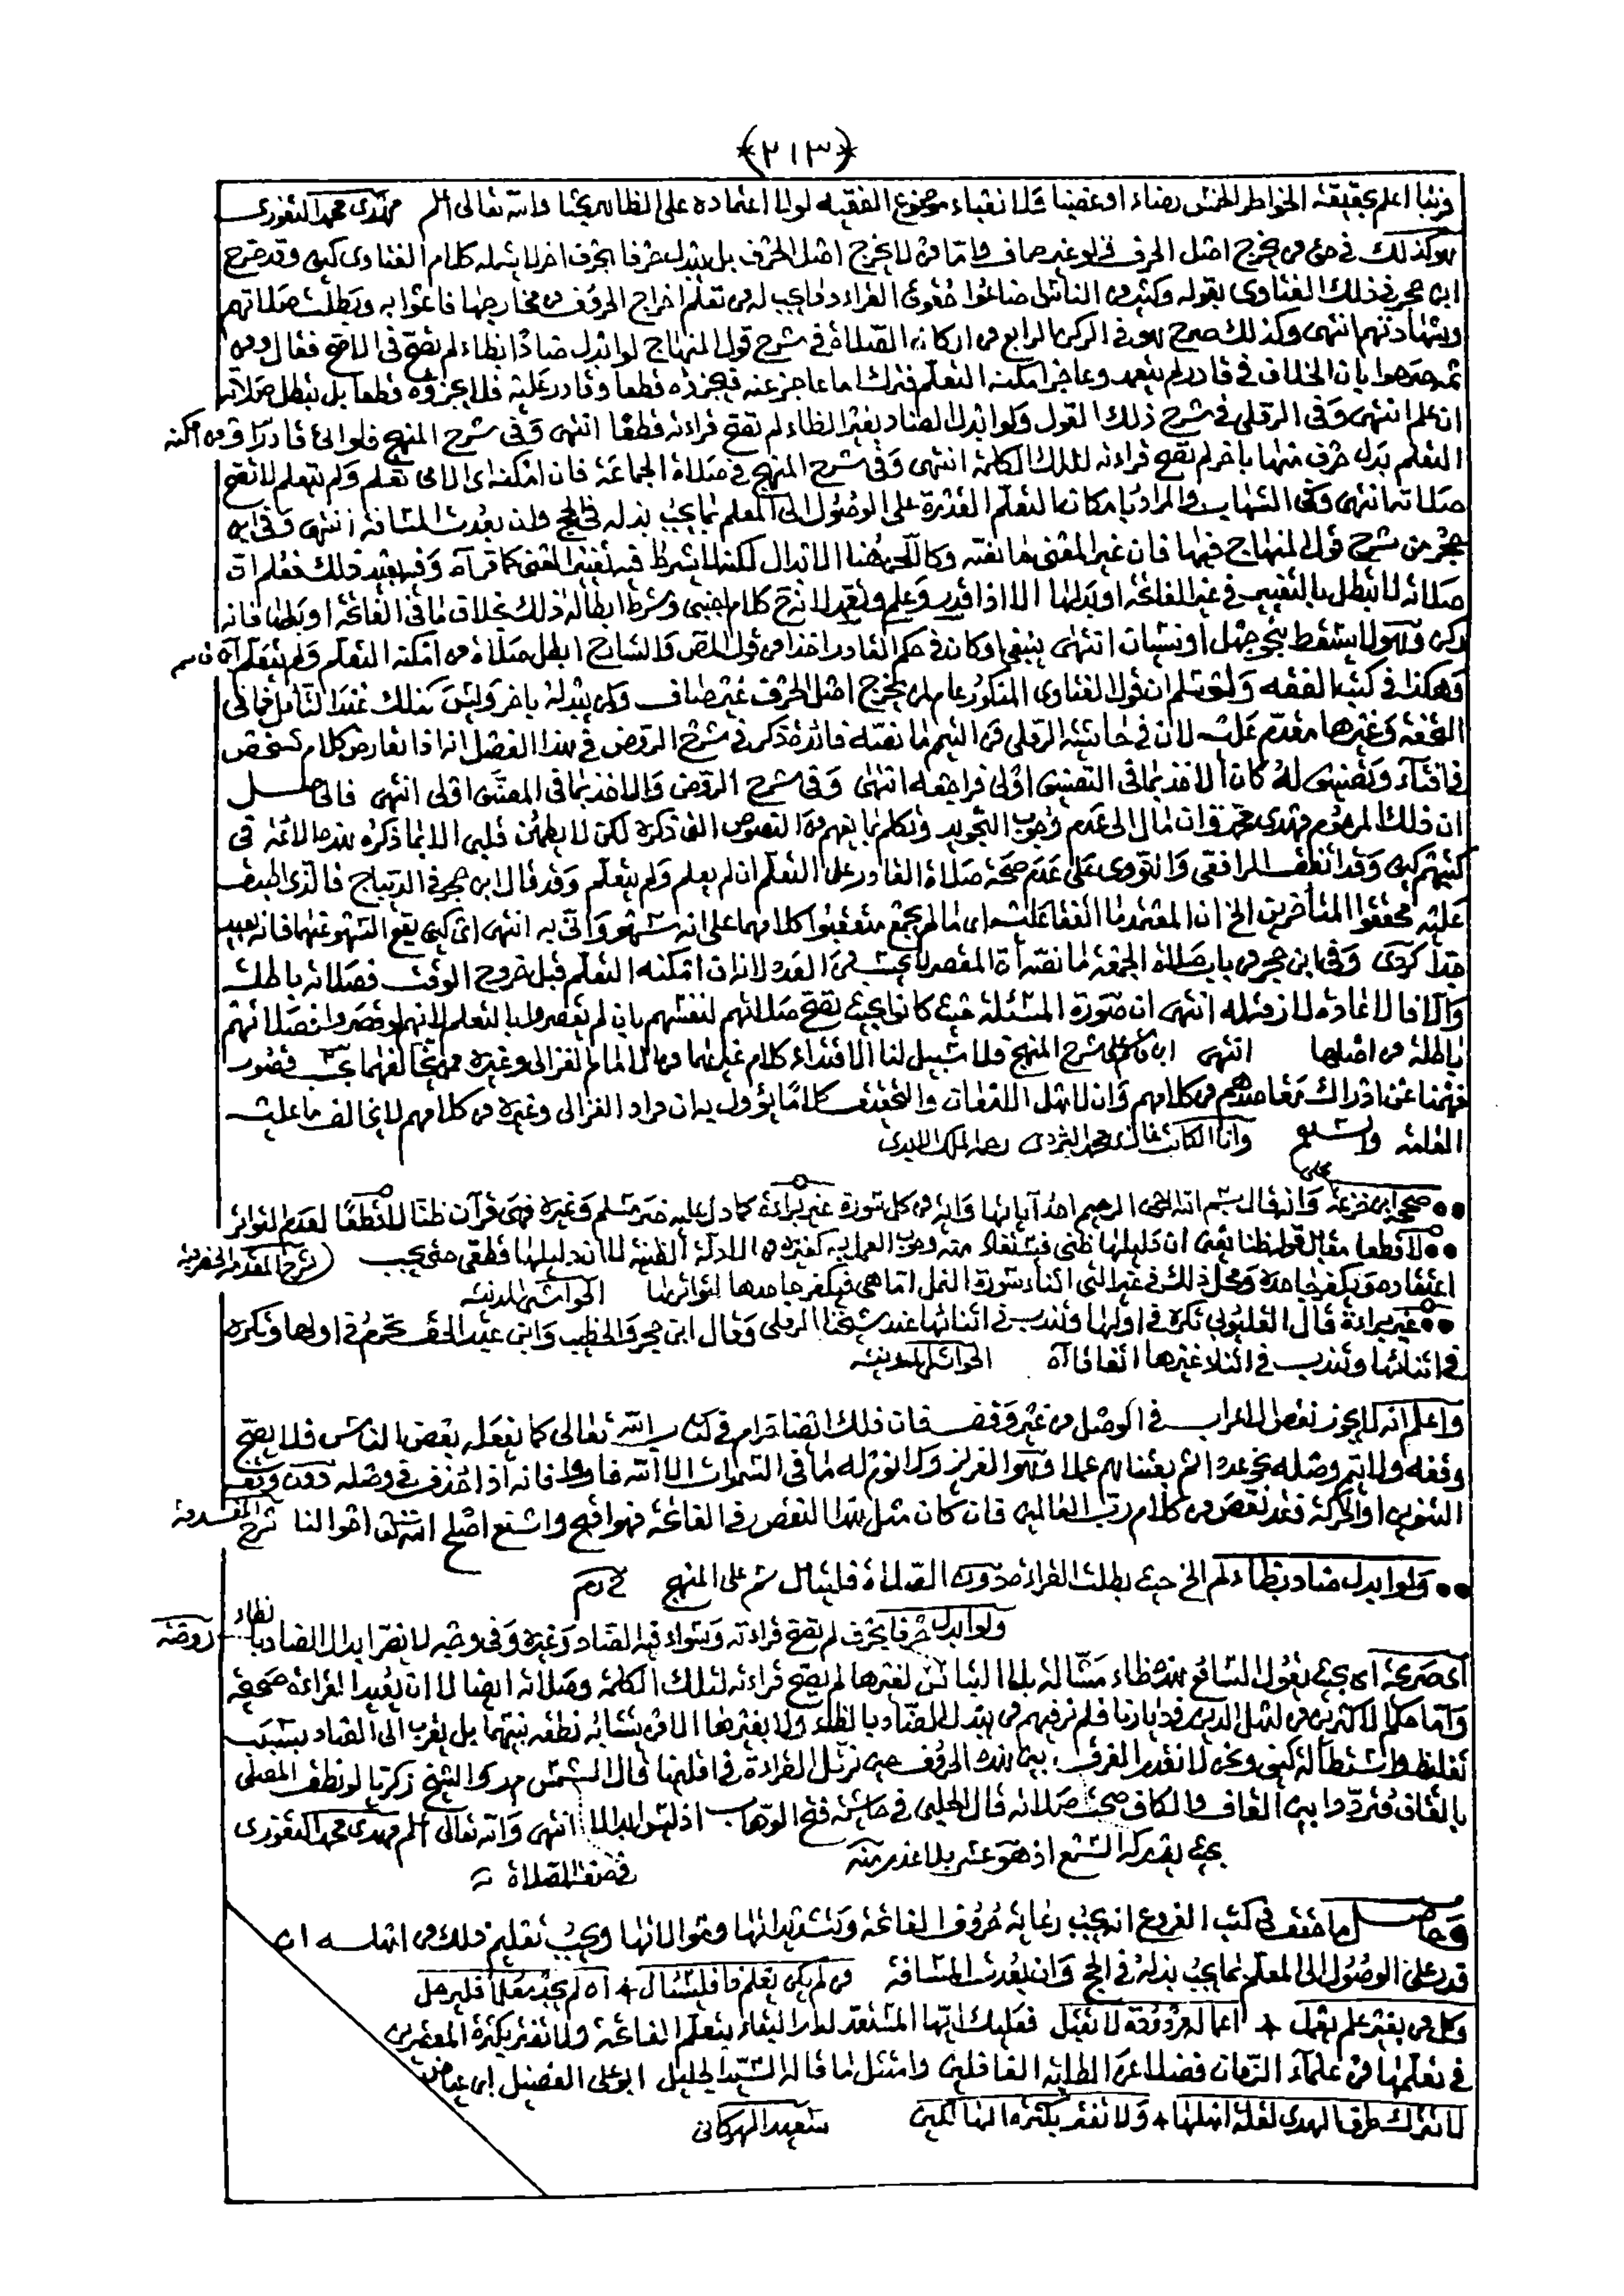 ﴿٢١٣﴾
وربنا اعلم بحقيقة الخواطر الخمس رضاء او غضبنا مهدي محمد التغوري
هو كذلك في حق من يخرج اصل الحرف في لو غير صاف واما من لا يخرج اصل الحرف بل يبدل حرفا بحرف اخر لا يشمله كلام الفتاوى كيف وقد صرح
ابن حجر في ذلك الفتاوى بقوله وكثير من الناس ضاعوا حقوق القراءة ما يجب له من تعلم اخراج الحروف من مخارجها فاثموا به وبطلت صلاتهم
وشهادتهم انتهى وكذلك صرح هو في الركن الرابع من اركان الصلاة في شرح قول المنهاج لو ابدل ضادا بظاء لم تصح في الاصح فقال ومن
ثم صرحوا بان الخلاف في قادر لم يتعمد وعاجز امكنه التعلم فترك اما عاجز عنه فيجزؤه قطعا وقادر عليه فلا يجزؤه قطعا بل تبطل صلاته
ان علم انتهى وفي الرملي في شرح ذلك القول ولو ابدل الضاد بغير الظاء لم تصح قراءته قطعا انتهى وفي شرح المنهج فلو اتى قادر او من امكنه
التعلم بدل حرف منها باخر لم تصح قراءته لتلك الكلمة انتهى وفي شرح المنهج في صلاة الجماعة فان امكنه اي الامي تعلم ولم يتعلم لا تصح
صلاته انتهى وفي الشهاب والمراد بامكان التعلم القدرة على الوصول الى المعلم بما يجب بذله في الحج وان بعدت المسافة انتهى وفي ابن
حجر من شرح قول المنهاج فيها فان غير المعنى ما نصه وكاللحن هنا الابدال لكنه لا يشترط فيه تغيير المعنى كما قرأه وفيه بعيد ذلك فعلم ان
صلاته لا تبطل بالتغيير في غير الفاتحة او بدلها الا اذا قدر وعلم وتعمد لانه ح كلام اجنبي وشرط ابطاله ذلك بخلاف ما في الفاتحة او بدلها فانه
ركن وهو لا يسقط بنحو جهل او نسيان انتهى ينبغي او كان في حكم القادر اخذا من قول المص والشارح ابطل صلاة من امكنه التعلم ولم يتعلم اه ابن قاسم
وهكذا في كتب الفقه ولو سلم ان قول الفتاوى المذكور عام لمن يخرج اصل الحرف غير صاف ولمن يبدله باخر وليس كذلك عند التأمل فما في
التحفة وغيرها مقدم عليه لان في حاشية الرملي من التيمم ما نصه فائدة ذكر في شرح الروض في هذا الفصل انه اذا تعارض كلام شخص
في افتاء وتصنيف له كان الاخذ بما في التصنيف اولى فراجعه انتهى وفي شرح الروض والاخذ بما في المصنف اولى انتهى فالحاصل
ان ذلك المرحوم مهدي محمد وان مال الى عدم وجوب التجويد وتكلم بما يفهم من النصوص التي ذكره لكن لا يطمئن قلبي الا بما ذكره هذه الائمة في
كتبهم كيف وقد اتفق الرافعي والنووي على عدم صحة صلاة القادر على التعلم ان لم يعلم ولم يتعلم وقد قال ابن حجر في الديباج فالذي اطبق
عليه محققوا المتأخرين الخ ان المعتمد ما اتفقا عليه اي ما لم يجمع متعقبوا كلامهما على انه سهو واتى به انتهى اي كيف يقع السهو عنهما فانه بعيد
جدا كردي وفي ابن حجر من باب صلاة الجمعة ما نصه ان المقصر لا يحسب من العدد لانه ان امكنه التعلم قبل خروج الوقت فصلاته باطلة
والا فالاعادة لازمة له انتهى ان صورة المسئلة حيث كانوا بحيث تصح صلاتهم لنفسهم بان لم يقصروا بالتعلم لانهم لو قصروا فصلاتهم
باطلة من اصلها انتهى ابن قاسم على شرح المنهج فلا سبيل لنا الاقتداء كلام غيرهما من مال الامام الغزالي وغيره ممن يخالفهما مع قصور
فهمنا عن ادراك مقاصدهم من كلامهم وان كلاما يؤول به ان مراد الغزالي وغيره من كلامهم لا يخالف ما عليه
الفقه والسلام وانا الكاتب غازي محمد الترددي
صحح ابن خزيمة وانه قال بسم الله الرحمن الرحيم احد آياتها وآية من كل سورة غير براءة كما دل عليه خبر مسلم وغيره فهي قرآن ظنا لا قطعا لعدم التواتر
لا قطعا مقابل قوله ظنا يعني ان دليلها ظني فيستفاد منه وجوب العمل به كغيره من الادلة الظنية لا ان دليلها قطعي حتى يجب (شرح المقدمة الحضرمية
اعتقاده ويكفر جاحده ومحل ذلك في غير التي اثناء سورة النمل اما هي فيكفر جاحدها لتواترها الحواشي المدنية
غير براءة قال القليوبي تكره في اولها وتندب في اثنائها عند شيخنا الرملي وقال ابن حجر والخطيب وابن عبد الحق تحرم في اولها وتكره
في اثنائها وتندب في اثناء غيرها اتفاقا اه الحواشي المدنية
واعلم انه لا يجوز نقص الاعراب في الوصل من غير وقف فان ذلك ايضا حرام في كتاب الله تعالى كما يفعله بعض الناس فلا يصح
وقفه ولا يتم وصله نحو عددا ثم بعثناهم عملا وهو العزيز ولا نوم له ما في السموات الا الله فاذا فانه اذا حذف في وصله دون وقف
التنوين او الحركة فقد نقص من كلام رب العالمين فان كان مثل هذا النقص في الفاتحة فهو اقبح واشنع اصلح الله تعالى احوالنا شرح المقدمة
ولو ابدل ضاد بظاء لم الخ حيث بطلت القراءة دون الصلاة فليتأمل سم على المنهج
ولو ابدل حرفا بحرف لم تصح قراءته وسواء فيه الضاد وغيره وفي وجه لا يضر ابدال الضاد بالظاء روضة
اي صريحة اي بحيث يقول السامع هذه ظاء مشالة بلا التباس لغيرها لم يصح قراءته لتلك الكلمة وصلاته ايضا الا ان يعيد القراءة صحيحة
واما حكم الاكثرين من اهل الدين في ديارنا فلم نر فيهم من يبدل الضاد بالظاء ولا بغيرها الا من يتشابه نطقه بينهما بل يقرب الى الضاد بسبب
تغليظ واستطالة كيف ونحن لا نقدر الفرق بين هذه الحروف حين نرتل القراءة في اقليمنا قال الشمس م ر والشيخ زكريا لو نطق المصلي
بالقاف مترددا بين القاف والكاف صحت صلاته قال الحلبي في حاشية فتح الوهاب اذ ليس ابدالا انتهى والله تعالى اعلم مهدي محمد التغوري
في صفة الصلاة
وحاصل ما حقق في كتب الفروع انه يجب رعاية حروف الفاتحة وتشديداتها وموالاتها ويجب تعليم ذلك من اهله ان
قدر على الوصول الى المعلم بما يجب بذله في الحج وان بعدت المسافة من لم يكن يعلم ذا فليسئال * ان لم يجد معلما فليرحل
وكل من بغير علم يعمل * اعماله مردودة لا تقبل فعليك ايها المستعد لدار البقاء بتعلم الفاتحة ولا تغتر بكثرة المقصرين
في تعلمها من علماء الزمان فضلا عن الطلبة الغافلين وامتثل ما قاله السيد الجليل ابو علي الفضيل ابن عياض
لا تترك طرق الهدى لقلة اهلها * ولا تغتر بكثرة الهالكين سعيد الهركاني